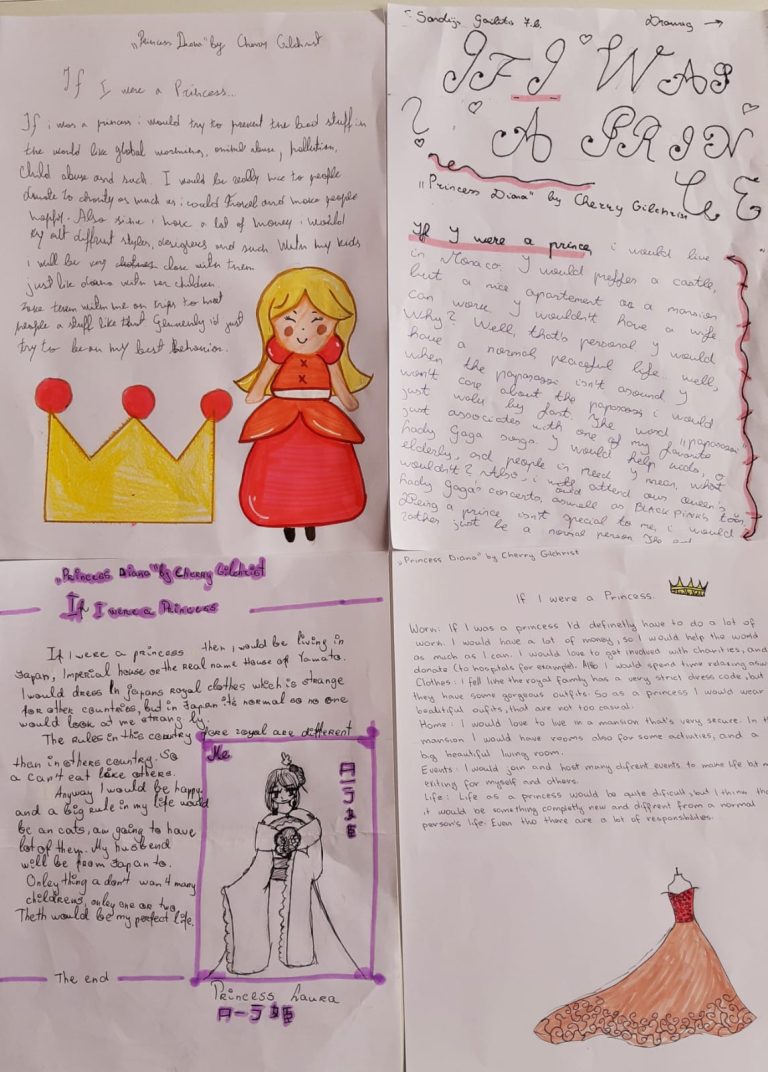 „Princess Diana" by Cherry Gilchrist
If I were a Princess...
If i was a princess i would try to prevent the bad stuff in
the world like global worhming, animal abuse, pollution,
child abuse and such. I would be really nice to people
donate to charity as much as i could and make people
happy. Also since i have a lot of money i would
try all diffrent styles, designers and such. With my kids
i will be very close with them
just like diana with her children.
Take them with me on trips to
people a stuff like that. Generenly i'd just
try to be on my best behavior.
7.b.
Drawing →
IF I WAS
A PRIN
CE
"Princess Diana" by Cherry Gilchrist
If Y were a prince, i would live
in Monaco. Y would preffer a castle,
but a nice apartement or a mansion
can work. Y wouldn't have a wife
Why? Well, that's personal. Y would
have a normal peaceful life.. well,
when the paparazzi isn't around. Y
won't care about the paparazzi i would
just walk by fast. The word "paparazzi"
just associates with one of my favorite
Lady Gaga songs. Y would help kids,
elderly, and people in need. Y mean, what
wouldn't? Also, i would attend our queen's
Lady Gaga's concerts, aswell as BLACKPINK's tour
Being a prince isn't special to me, i would
rather just be a normal person
„Princess Diana" by Cherry Gilchrist
If I were a Princess
If I were a princess then i would be living in
Japan, Imperial house or the real name House of Yamato.
I would dress In japans royal clothes which is strange
for other countries, but in Japan it's normal so no one
would look at me strangly.
The rules in this country fore royal are different
than in others country. So
a can't eat like others.
Anyway I would be happy
and a big rule in my life would
be an cats, am going to have
lot of them. My husbend
will be from Japan to.
Onley thing a don't wan4 many
childrens, onley one or two.
Theth would be my perfect life.
Me
The end
Princess Laura
„Princess Diana" by Cherry Gilchrist
If I were a Princess.
Work: If I was a princess I'd definetlly have to do a lot of
work. I would have a lot of money, so I would help the world
as much as I can. I would love to get involved with charities, and
donate (to hospitals for example). Also I would spend time relaxing
Clothes: I fell like the royal family has a very strict dress code, but
they have some gorgeous outfits. So as a princess I would wear
beautiful oufits, that are not too casual.
Home: I would love to live in a mansion that's very secure. In
mansion I would have rooms also for some activities, and a
big beautiful living room.
Events: I would join and host many difrent events to make life
exiting for myself and others.
Life: Life as a princess would be quite dificult, but I think
it would be something completly new and diffrent from a normal
person's life. Even tho there are a lot of responsibilities.